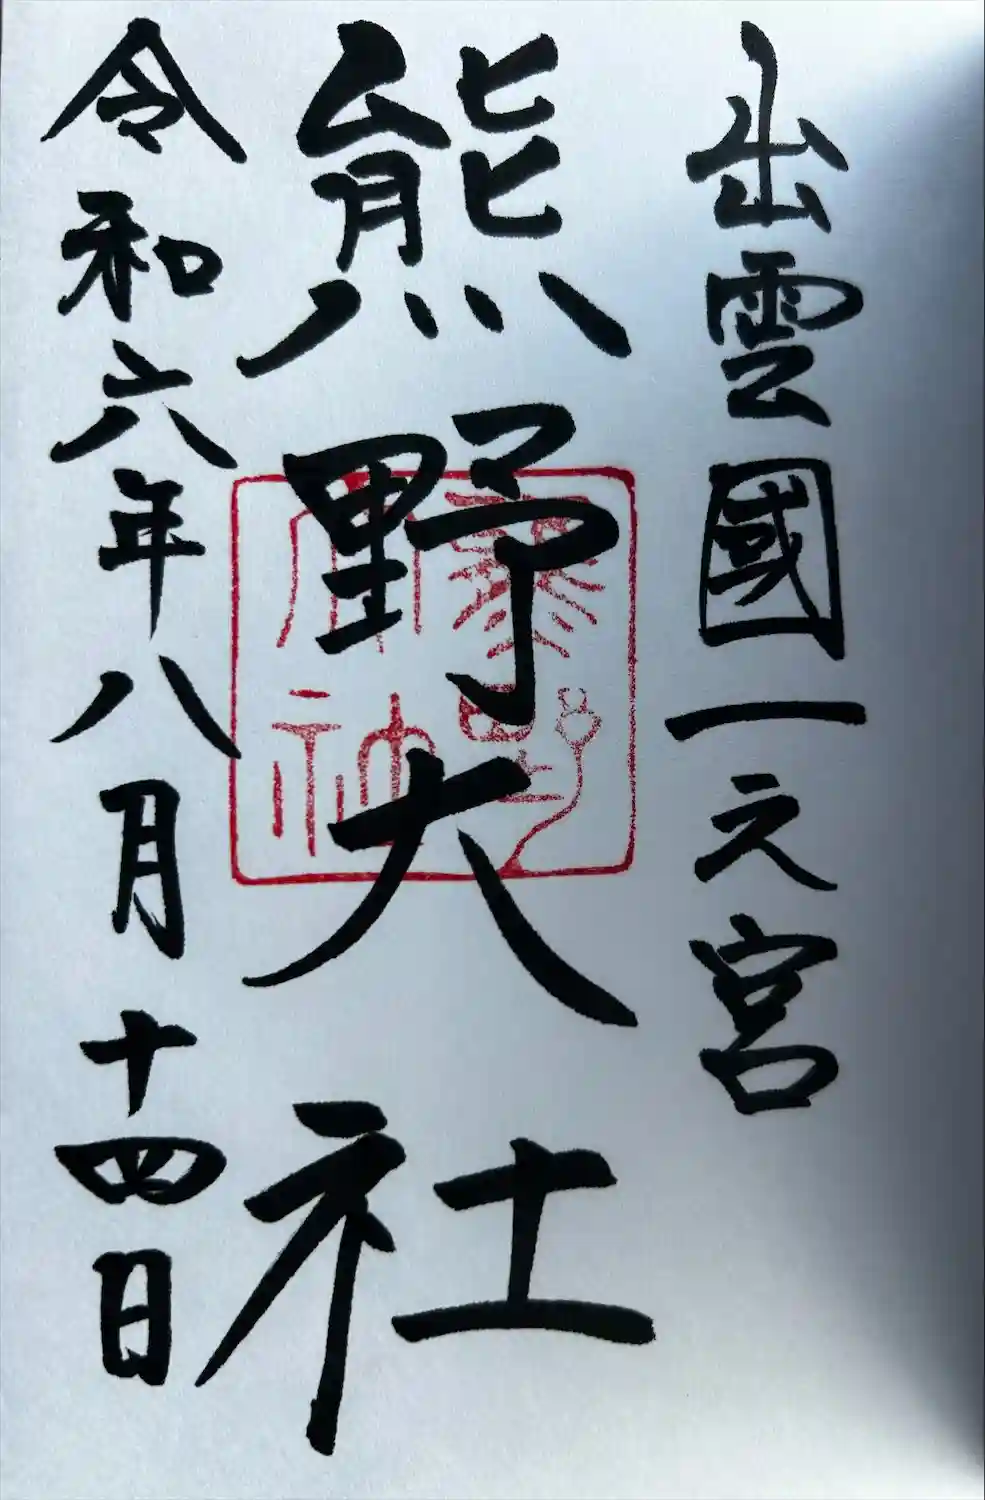 出雲國一之宮
熊野大社
令和六年八月十四日